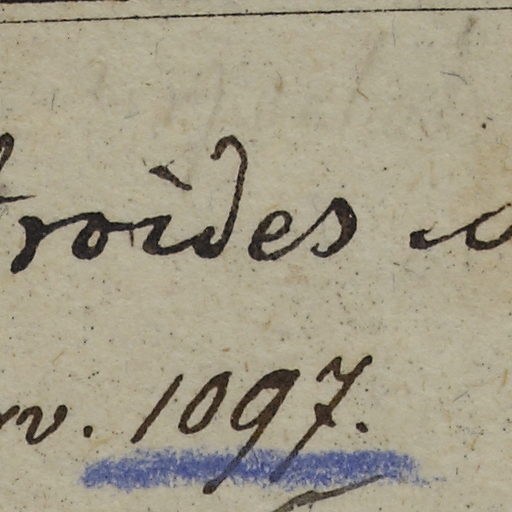 troides
rv. 1097.